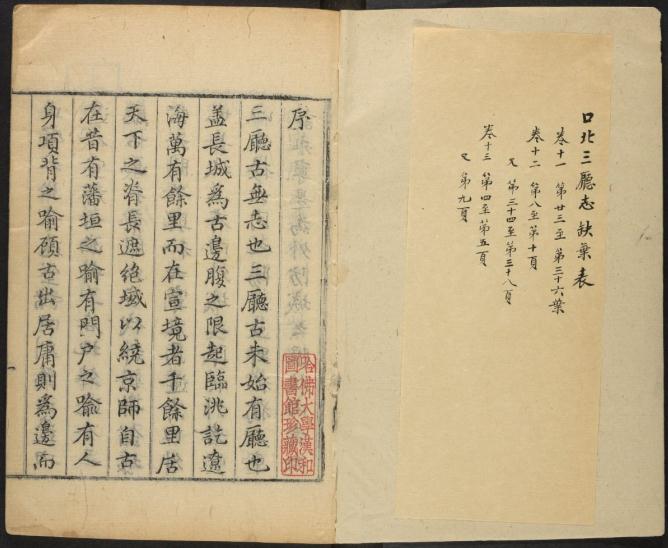 口北三廳志缺葉表
卷十一 第廿三至第三十六葉
卷十二 第八至第十頁
又 第三十四至第三十八頁
卷十三 第四至第五頁
又 第九頁
序
三廳古無志也三廳古未始有廳也
蓋長城爲古邊腹之限起臨洮訖遼
海萬有餘里而在宣境者千餘里居
天下之脊長遮絶域以繞京師自古
在昔有藩垣之喻有門户之喻有人
身項背之喻顧古出居庸則爲邊而
哈佛大學漢和
圖書館珍藏印